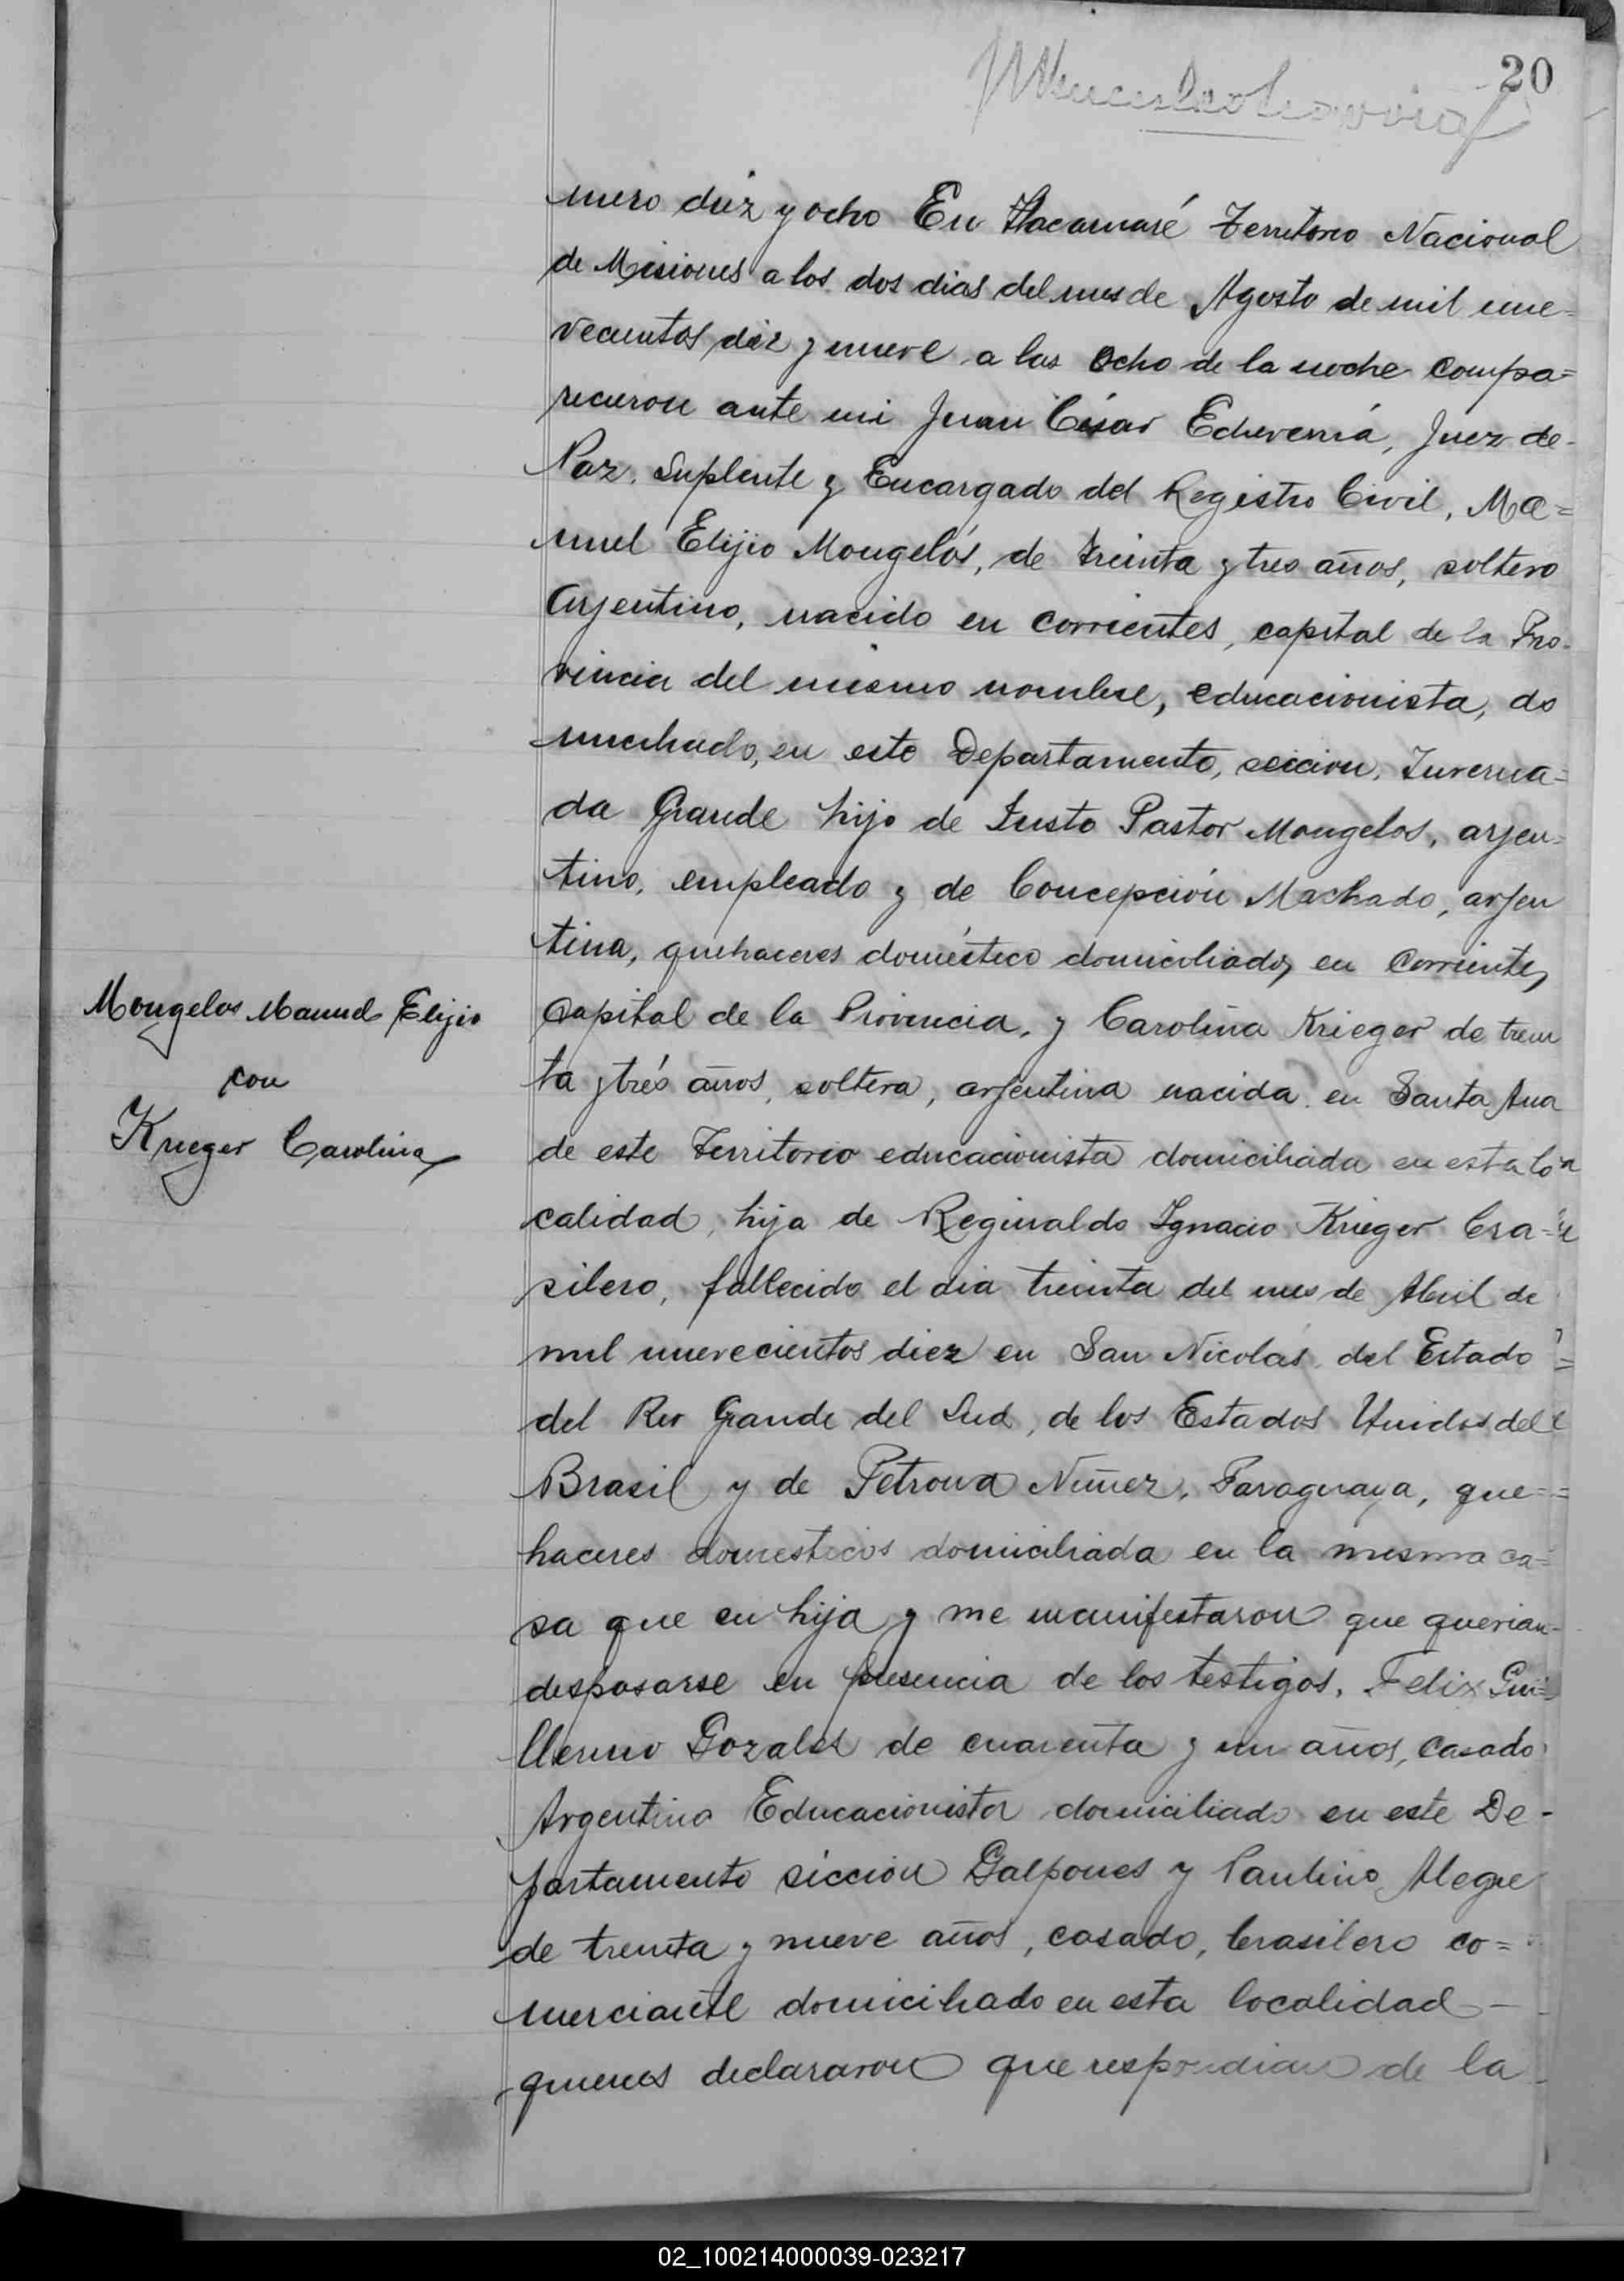 20
mero diez y ocho En Itacaruaré Territorio Nacional
de Misiones a los dos dias del mes de Agosto de mil nue=
vecientos diez y nueve a las ocho de la noche compa=
recieron ante mi Juan César Echeverriá, Juez de
Paz, Suplente y Encargado del Registro Civil, Ma=
nuel Elijio Mongelós, de treinta y tres años, soltero
Arjentino, nacido en Corrientes, capital de la Pro-
vincia del mismo nombre, educacionista, do
miciliado, en este Departamento, seccion, Inverna=
da Grande hijo de Justo Pastor Mongelos, arjen=
tino, empleado y de Concepción Machado, arjen
tina, quehaceres doméstico domiciliados en Corrientes,
Capital de la Provincia, y Carolina Krieger de trein
ta y trés años, soltera, arjentina nacida en Santa Ana
de este Territorio educacionista domiciliada en esta lo
calidad, hija de Reginaldo Ygnacio Krieger bra=
silero, fallecido el dia treinta del mes de Abril de
mil nuevecientos diez en San Nicolás del Estado
del Rio Grande del Sud, de los Estados Unidos del
Brasil y de Petrona Nuñez, Paraguaya, que=
haceres domesticos domiciliada en la misma ca=
sa que su hija y me manifestaron que querian
desposarse en presencia de los testigos, Felix Gui=
llermo Gozales de cuarenta y un años, casado
Argentino Educacionista domiciliado en este De-
partamento sección Galpones y Paulino Alegre
de treinta y nueve años, casado, brasilero co=
merciante domiciliado en esta localidad
quienes declararon que respondian de la
Mongelos Manuel Elijio
con
Krieger Carolina
02_100214000039-023217